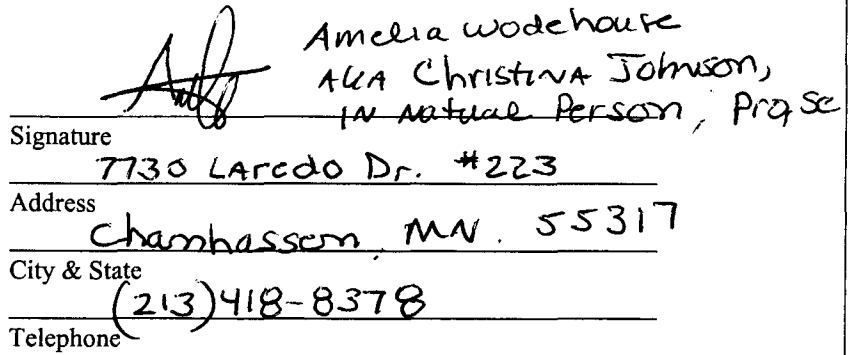 Amelia Wodehouse
AKA Christina Johnson,
IN Natual Person, Pro Se
Signature
7730 Laredo Dr. #223
Address
Chamhassem, MN. 55317
City & State
(213) 418-8378
Telephone